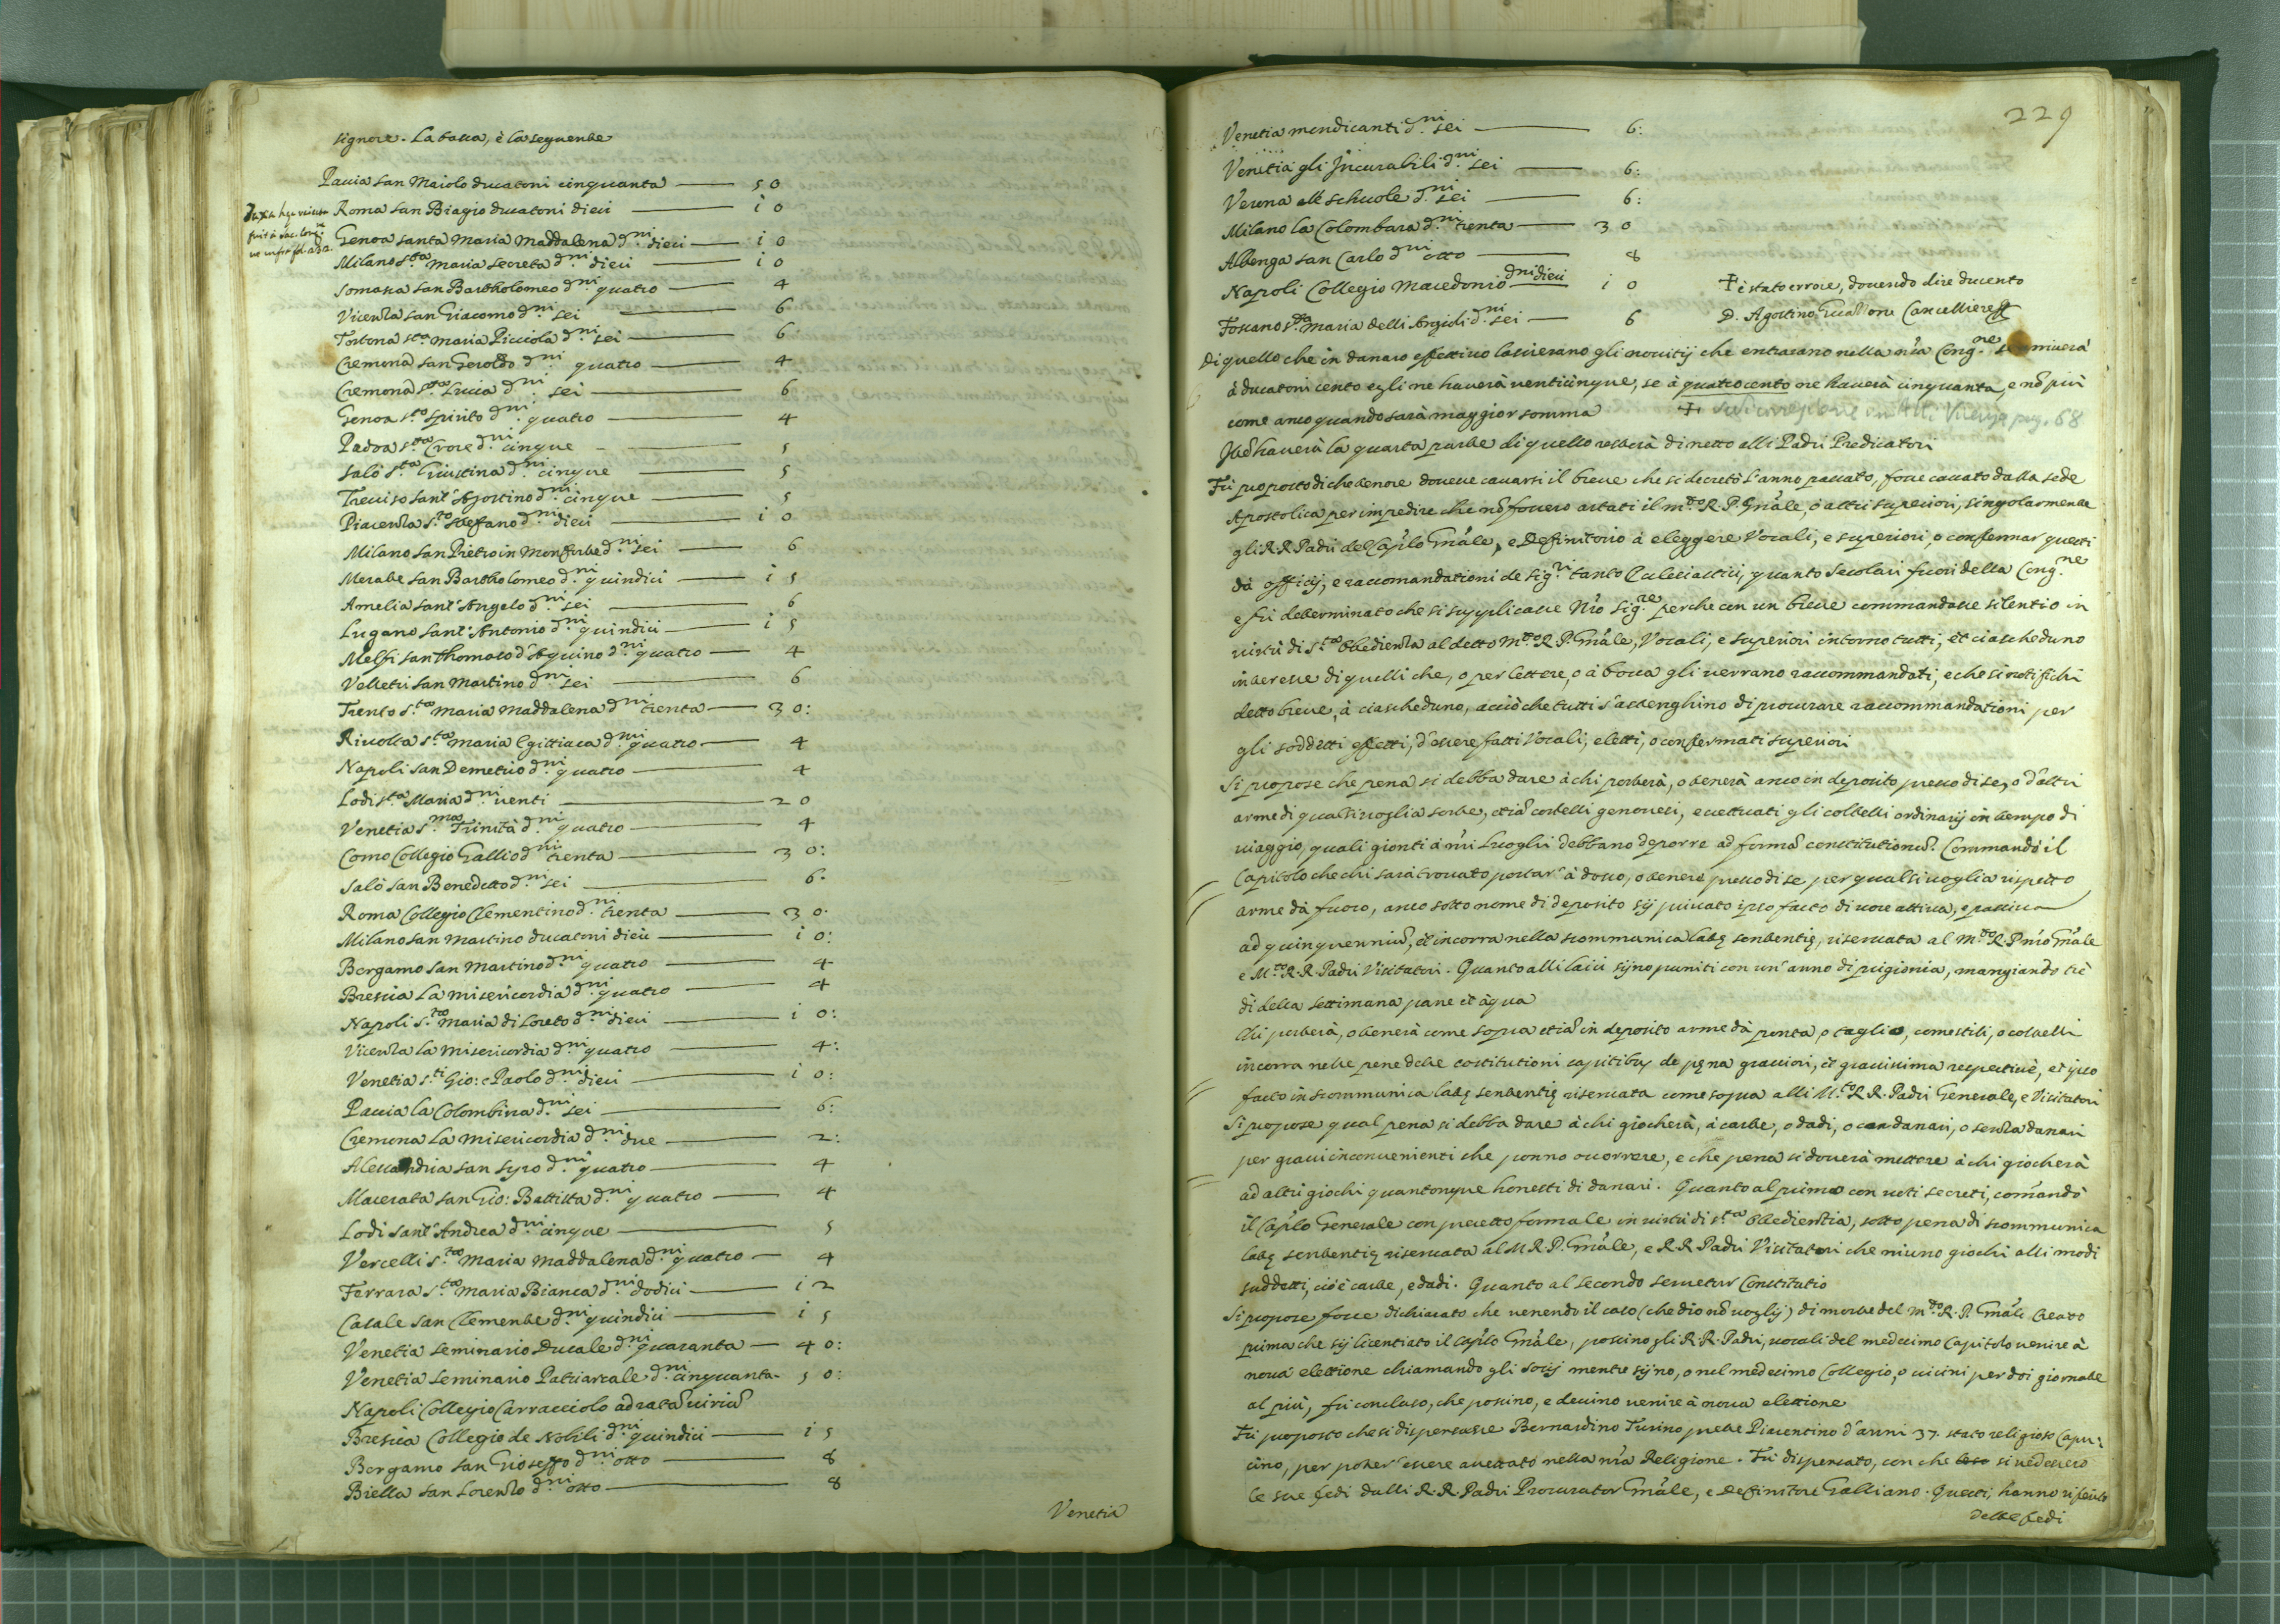 signore. La tassa, è la seguente
Pavia San Maiolo ducatoni cinquanta — 50
Roma San Biagio ducatoni dieci — i0
Genoa santa Maria Maddalena d.ni dieci — i0
Milano S.ta Maria Secreta d.ni dieci — i0
Somasca San Bartholomeo d.ni quatro — 4
Vicenza San Giacomo d.ni sei — 6
Tortona S.ta Maria Picciola d.ni sei — 6
Cremona San Geroldo d.ni quatro — 4
Cremona S.ta Lucia d.ni sei — 6
Genoa S.to Spirito d.ni quatro — 4
Padoa S.ta Croce d.ni cinque — 5
Salò S.ta Giustina d.ni cinque — 5
Treviso Sant'Agostino d.ni cinque — 5
Piacenza S.to Stefano d.ni dieci — i0
Milano San Pietro in Monforte d.ni sei — 6
Merate San Bartholomeo d.ni quindici — i5
Amelia Sant'Angelo d.ni sei — 6
Lugano Sant'Antonio d.ni quindici — i5
Melfi San Thomaso d'Aquino d.ni quatro — 4
Velletri San Martino d.ni sei — 6
Trento S.ta Maria Maddalena d.ni trenta — 30:
Rivolta S.ta Maria Egittiaca d.ni quatro — 4
Napoli San Demetrio d.ni quatro — 4
Lodi S.ta Maria d.ni venti — 20
Venetia S.ma Trinità d.ni quatro — 4
Como Collegio Gallio d.ni trenta — 30:
Salò San Benedetto d.ni sei — 6.
Roma Collegio Clementino d.ni trenta — 30.
Milano San Martino ducatoni dieci — i0:
Bergamo San Martino d.ni quatro — 4
Brescia La Misericordia d.ni quatro — 4
Napoli S.ta Maria di Loreto d.ni dieci — i0:
Vicenza La Misericordia d.ni quatro — 4:
Venetia S.ti Gio: e Paolo d.ni dieci — i0:
Pavia la Colombina d.ni sei — 6:
Cremona La Misericordia d.ni due — 2:
Alessandria San Syro d.ni quatro — 4
Macerata San Gio: Battista d.ni quatro — 4
Lodi Sant'Andrea d.ni cinque — 5
Vercelli S.ta Maria Maddalena d.ni quatro — 4
Ferrara S.ta Maria Bianca d.ni dodici — i2
Casale San Clemente d.ni quindici — i5
Venetia Seminario Ducale d.ni quaranta — 40:
Venetia Seminario Patriarcale d.ni cinquanta — 50:
Napoli Collegio Carracciolo ad ratã viriũ
Brescia Collegio de Nobili d.ni quindici — i5
Bergamo San Gioseffo d.ni otto — 8
Biella San Lorenzo d.ni otto — 8
Venetia
229
Venetia mendicanti d.ni sei — 6:
Venetia gli Incurabili d.ni sei — 6:
Verona alle schuole d.ni sei — 6:
Milano la Colombara d.ni trenta — 30
Albenga San Carlo d.ni otto — 8
Napoli Collegio Macedonio d.ni dieci — i0
Toscano S.ta Maria delli Angioli d.ni sei — 6
è stato errore, dovendo dire ducento
D. Agostino Cancelliere
Di quello che in danaro effettivo lascierano gli novitij che entrarano nella nr̃a Cong.ne se arriverà
à ducatoni cento egli ne haverà venticinque, se à quattrocento ne haverà cinquanta, e nõ più
come anco quando sarà maggior somma
pag. 68
Itẽ haverà la quarta parte di quello resterà di netto alli Padri Predicatori
Fù proposto di che tenore dovesse cavarsi il breve che si decretò l'anno passato, fosse cavato dalla sede
Apostolica per impedire che nõ fossero astati il m.to R. P. Gñale, ò altri superiori, singolarmente
gli R.R. Padri del Cap̃lo Gñale, e Definitorio à eleggere Vocali, e superiori, o confermar questi
dà officij, e raccomandationi de Sig.ri tanto Ecclesiastici, quanto Secolari fuori della Cong.ne
e fù determinato che si supplicasse Nr̃o Sig.re perche con un breve commandasse silentio in
virtù di S.ta Obedienza al detto M.to R. P. Gñale, Vocali, e superiori intorno tutti, et ciascheduno
interesse di quelli che, o per lettere, o à bocca gli verrano raccommandati, e che si notifichi
detto breve, à ciascheduno, acciò che tutti s'astenghino di procurare raccommandationi per
gli sodditti effetti, d'essere fatti Vocali, eletti, o confermati superiori
Si propose che pena si debba dare à chi porterà, o tenerà anco in deposito presso di se, o d'altri
arme di qualsivoglia sorte, etiã coltelli genovesi, eccettuati gli coltelli ordinarij in tempo di
viaggio, quali gionti à nr̃i Luoghi debbano deporre ad formã constitutionũ. Commandò il
Capitolo che chi sarà trovato portar' à dosso, o tenere presso di se, per qualsivoglia rispetto
arme dà fuoco, anco sotto nome di deposito sij privato ipso facto di voce attiva, e passiva
ad quinquenniũ, et incorra nella scommunica latę sententię, riservata al M.to R. P. nr̃o Gñale
e M.to R.R. Padri Visitatori. Quanto alli laici sijno puniti con un'anno di prigionia, mangiando trè
dì della settimana pane et aqua
Chi porterà, o tenerà come sopra etiã in deposito arme dà ponta, o taglio, come stili, o coltelli
incorra nelle pene delle costitutioni capitibus de pęna graviori, et gravissima respective, et ipso
facto in scommunica latę sententię riservata come sopra alli M.to R R. Padri Generale, e Visitatori
Si propose qual pena si debba dare à chi giocherà, à carte, o dadi, o con danari, o senza danari
per gravi inconvenienti che ponno occorrere, e che pena si doverà mettere à chi giocherà
ad altri giochi quantonque honesti di danari. Quanto al primo con voti secreti, comãndò
il Cap̃lo Generale con precetto formale in virtù di S.ta Obedientia, sotto pena di scommunica
latę sententię riservata al M R. P. Gñale, e R R Padri Visitatori che niuno giochi alli modi
suddetti, cioè carte, e dadi. Quanto al secondo servetur Constitutio
Si propose fosse dichiarato che venendo il caso (che dio nõ voglij) di morte del m.to R. P. Gñale creato
prima che sij licentiato il Cap̃lo Gñale, possino gli R.R. Padri, vocali del medesimo Capitolo venire à
nova elettione chiamando gli Socij mentre sijno, o nel medesimo Collegio, o vicini per doi giornate
al più, fù concluso, che possino, e devino venire à nova elettione
Fù proposto che si dispensasse Bernardino Turino prete Piacentino d'anni 37. stato religioso Capu:
cino, per poter' essere accettato nella nr̃a Religione. Fù dispensato, con che si vedessero
le sue fedi dalli R.R. Padri Procurator Gñale, e Definitore Galliano. Questi, hanno riferito
delle fedi